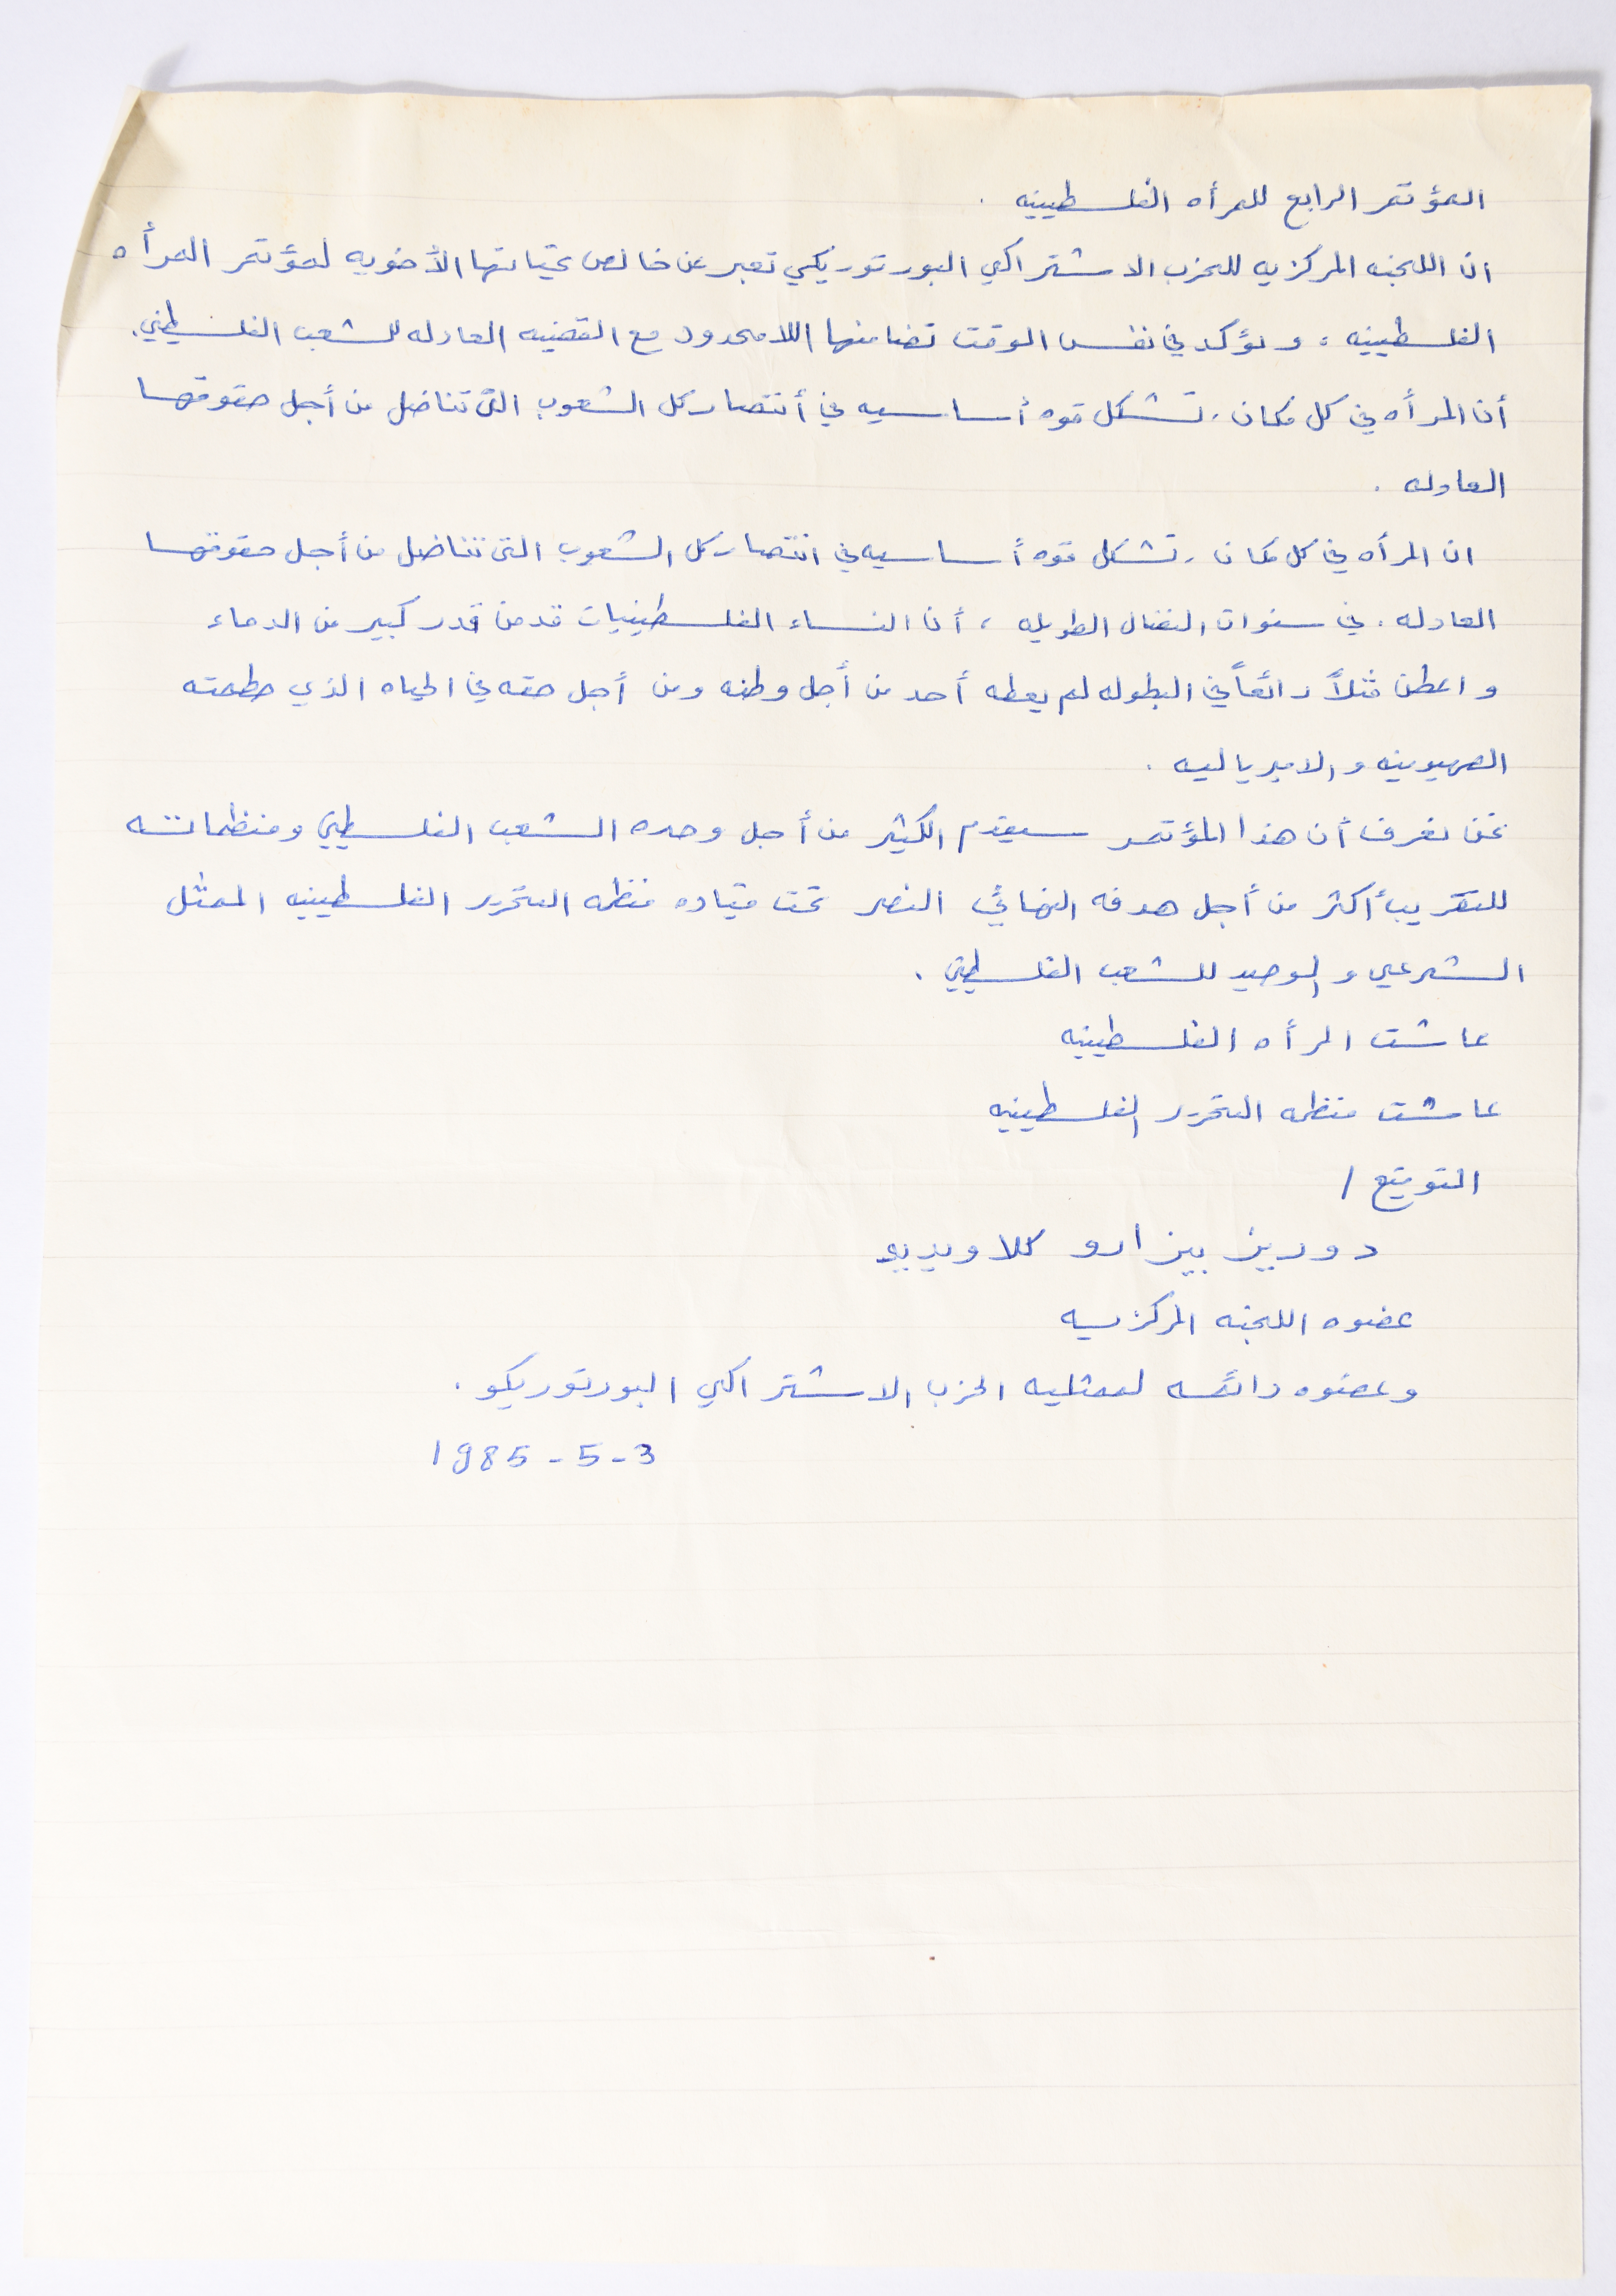 المؤتمر الرابع للمرأه الفلسطينيه .
ان اللجنه المركزيه للحزب الاشتراكي البورتوريكي تعبر عن خالص تحياتها الأخويه لمؤتمر المرأه
الفلسطينيه ، ونؤكد في نفس الوقت تضامنها اللامحدود مع القضيه العادله للشعب الفلسطيني .
أن المرأه في كل مكان ، تشكل قوه أساسيه في أنتصار كل الشعوب التى تناضل من أجل حقوقها
العادله .
ان المرأه في كل مكان ، تشكل قوه أساسيه في انتصار كل الشعوب التى تناضل من أجل حقوقها
العادله . في سنوات النضال الطويله ، أن النساء الفلسطينيات قدمن قدر كبير من الدماء
واعطن مثلاً رائعاً في البطوله لم يعطه أحد من أجل وطنه ومن أجل حقه في الحياه الذي حطمته
الصهيونيه والامبرياليه .
نحن نعرف أن هذا المؤتمر سيقدم الكثير من أجل وحده الشعب الفلسطيني ومنظماته
للتقريب أكثر من أجل هدفه النهائي النصر تحت قياده منظمه التحرير الفلسطينيه الممثل
الشرعي والوحيد للشعب الفلسطيني .
عاشت المرأه الفلسطينيه
عاشت منظمه التحرير الفلسطينيه
التوقيع /
دوريز بيزارو كلاوديو
عضوه اللجنه المركزيه
وعضوه دائمه لممثليه الحزب الاشتراكي البورتوريكو .
3-5-1985